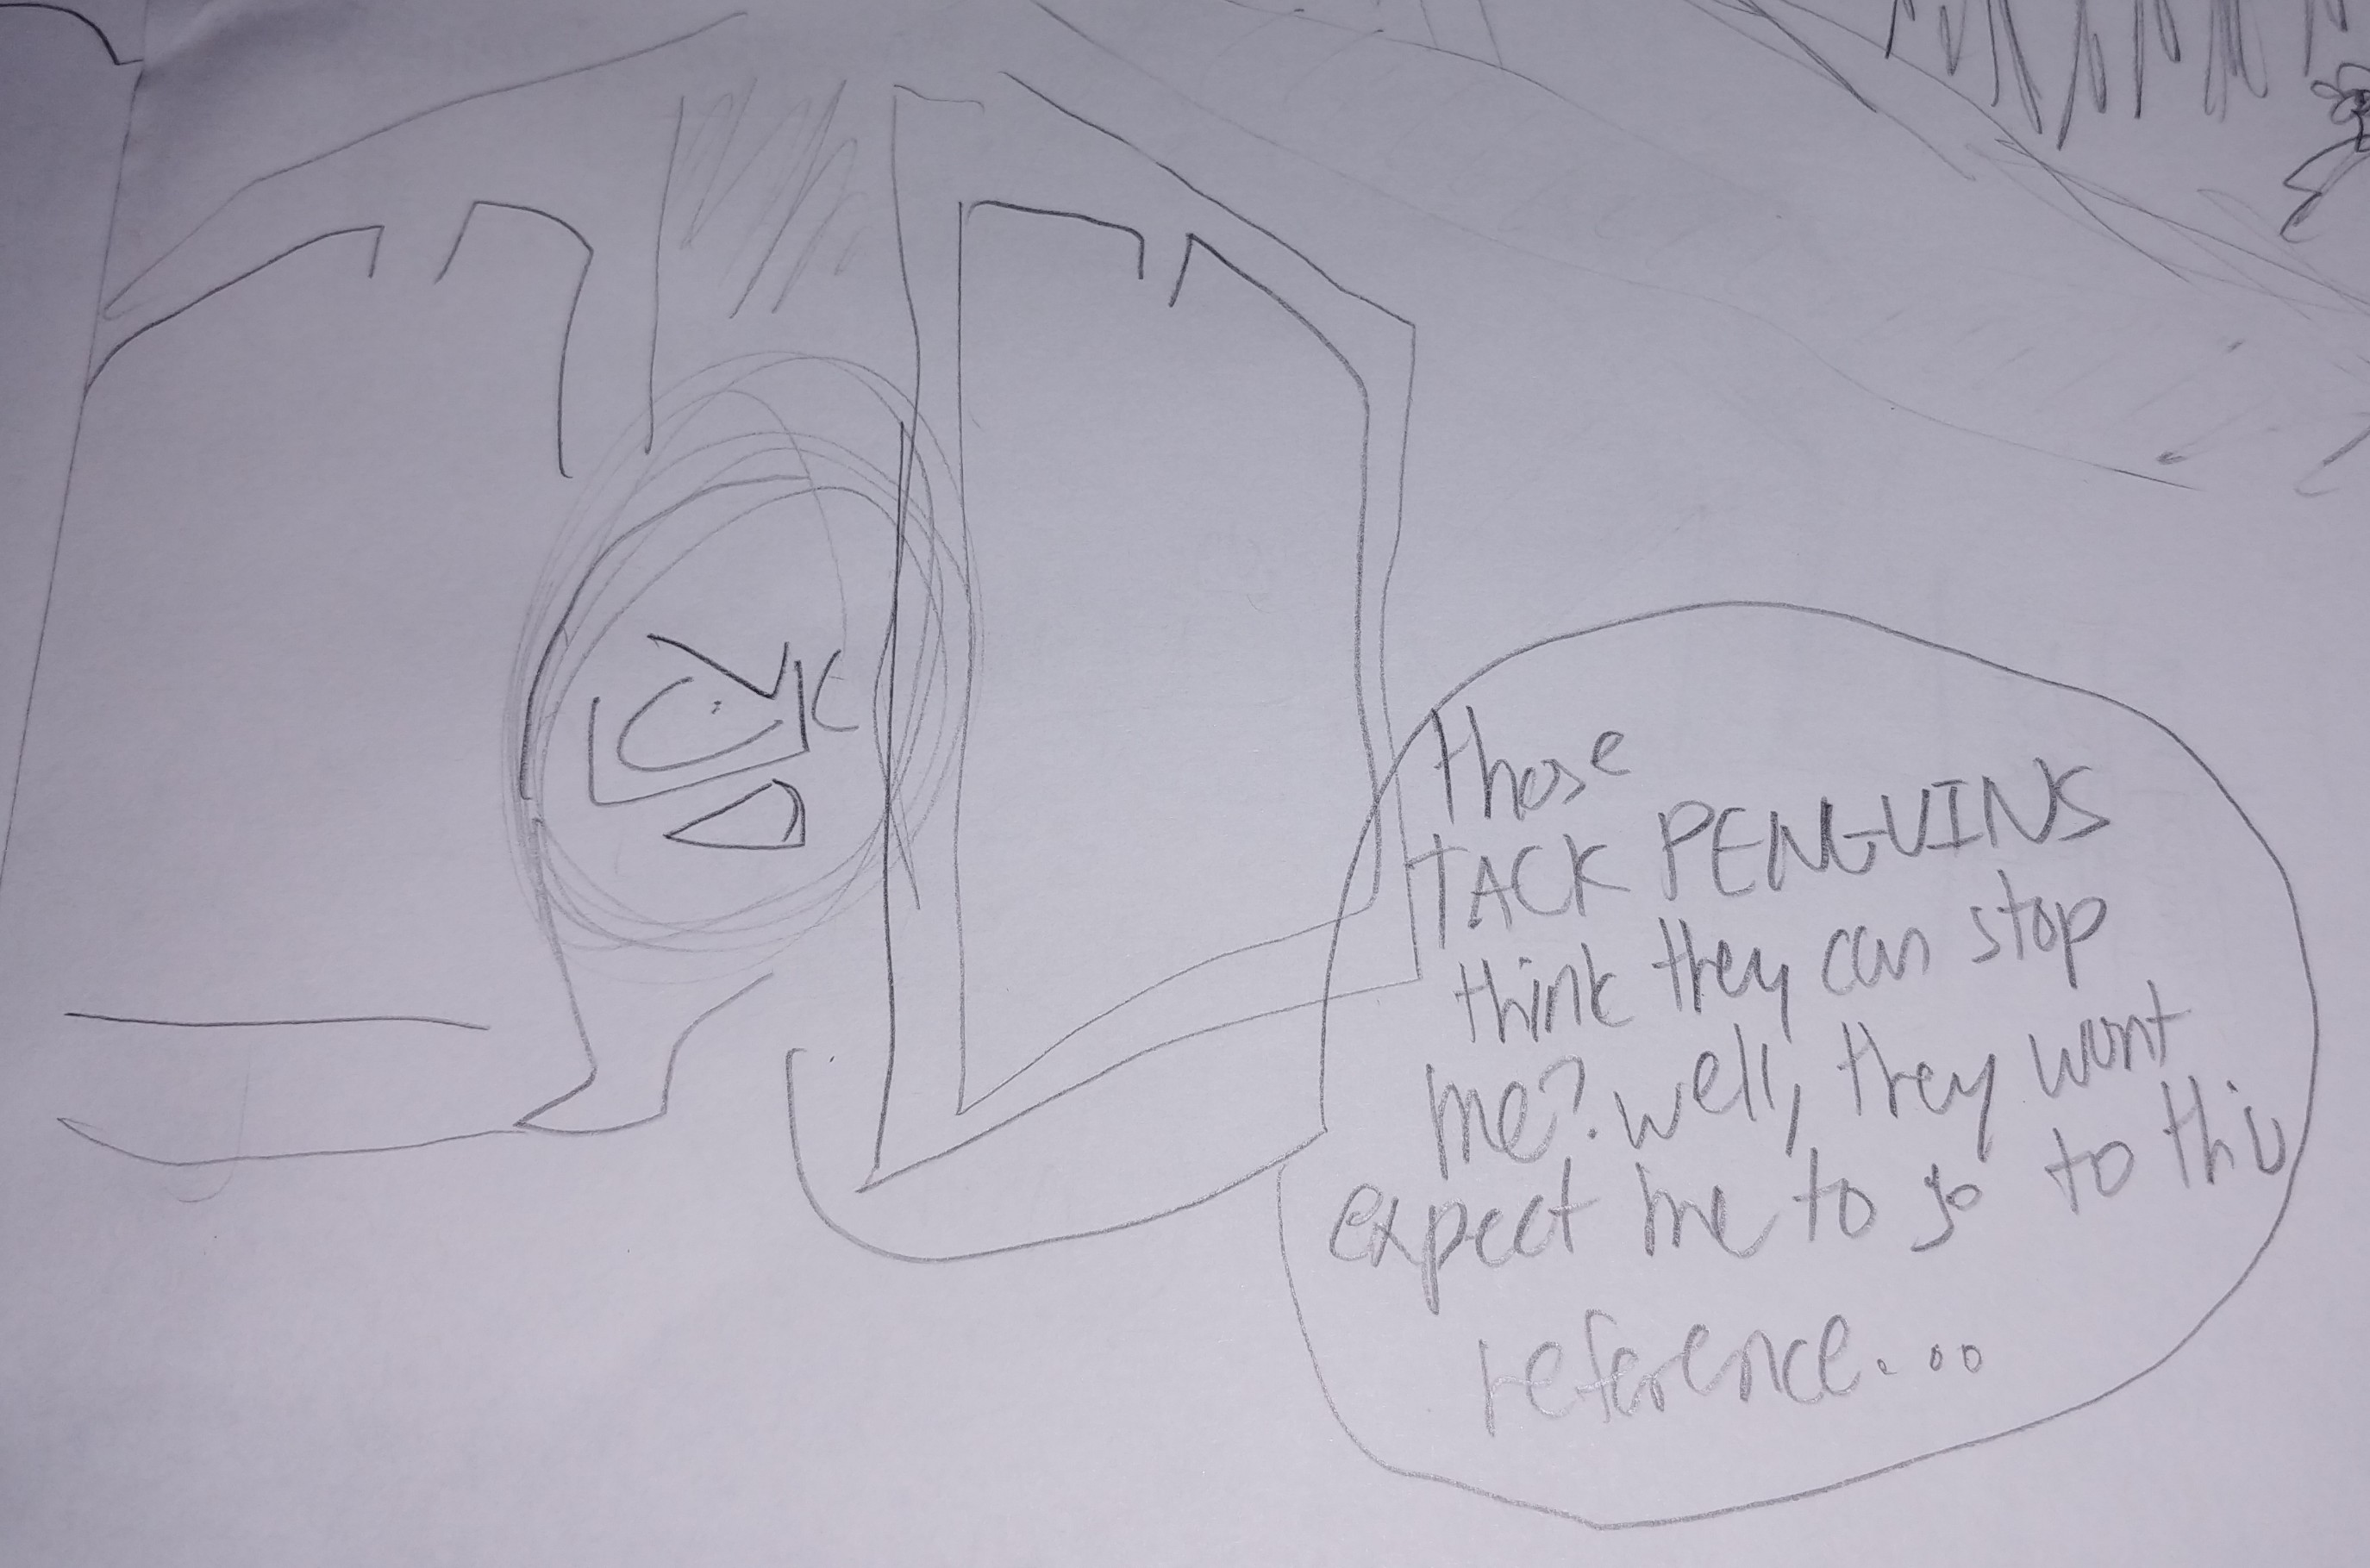 those
TACK PENGUINS
think they can stop
me? well, they wont
expect me to go to this
reference...